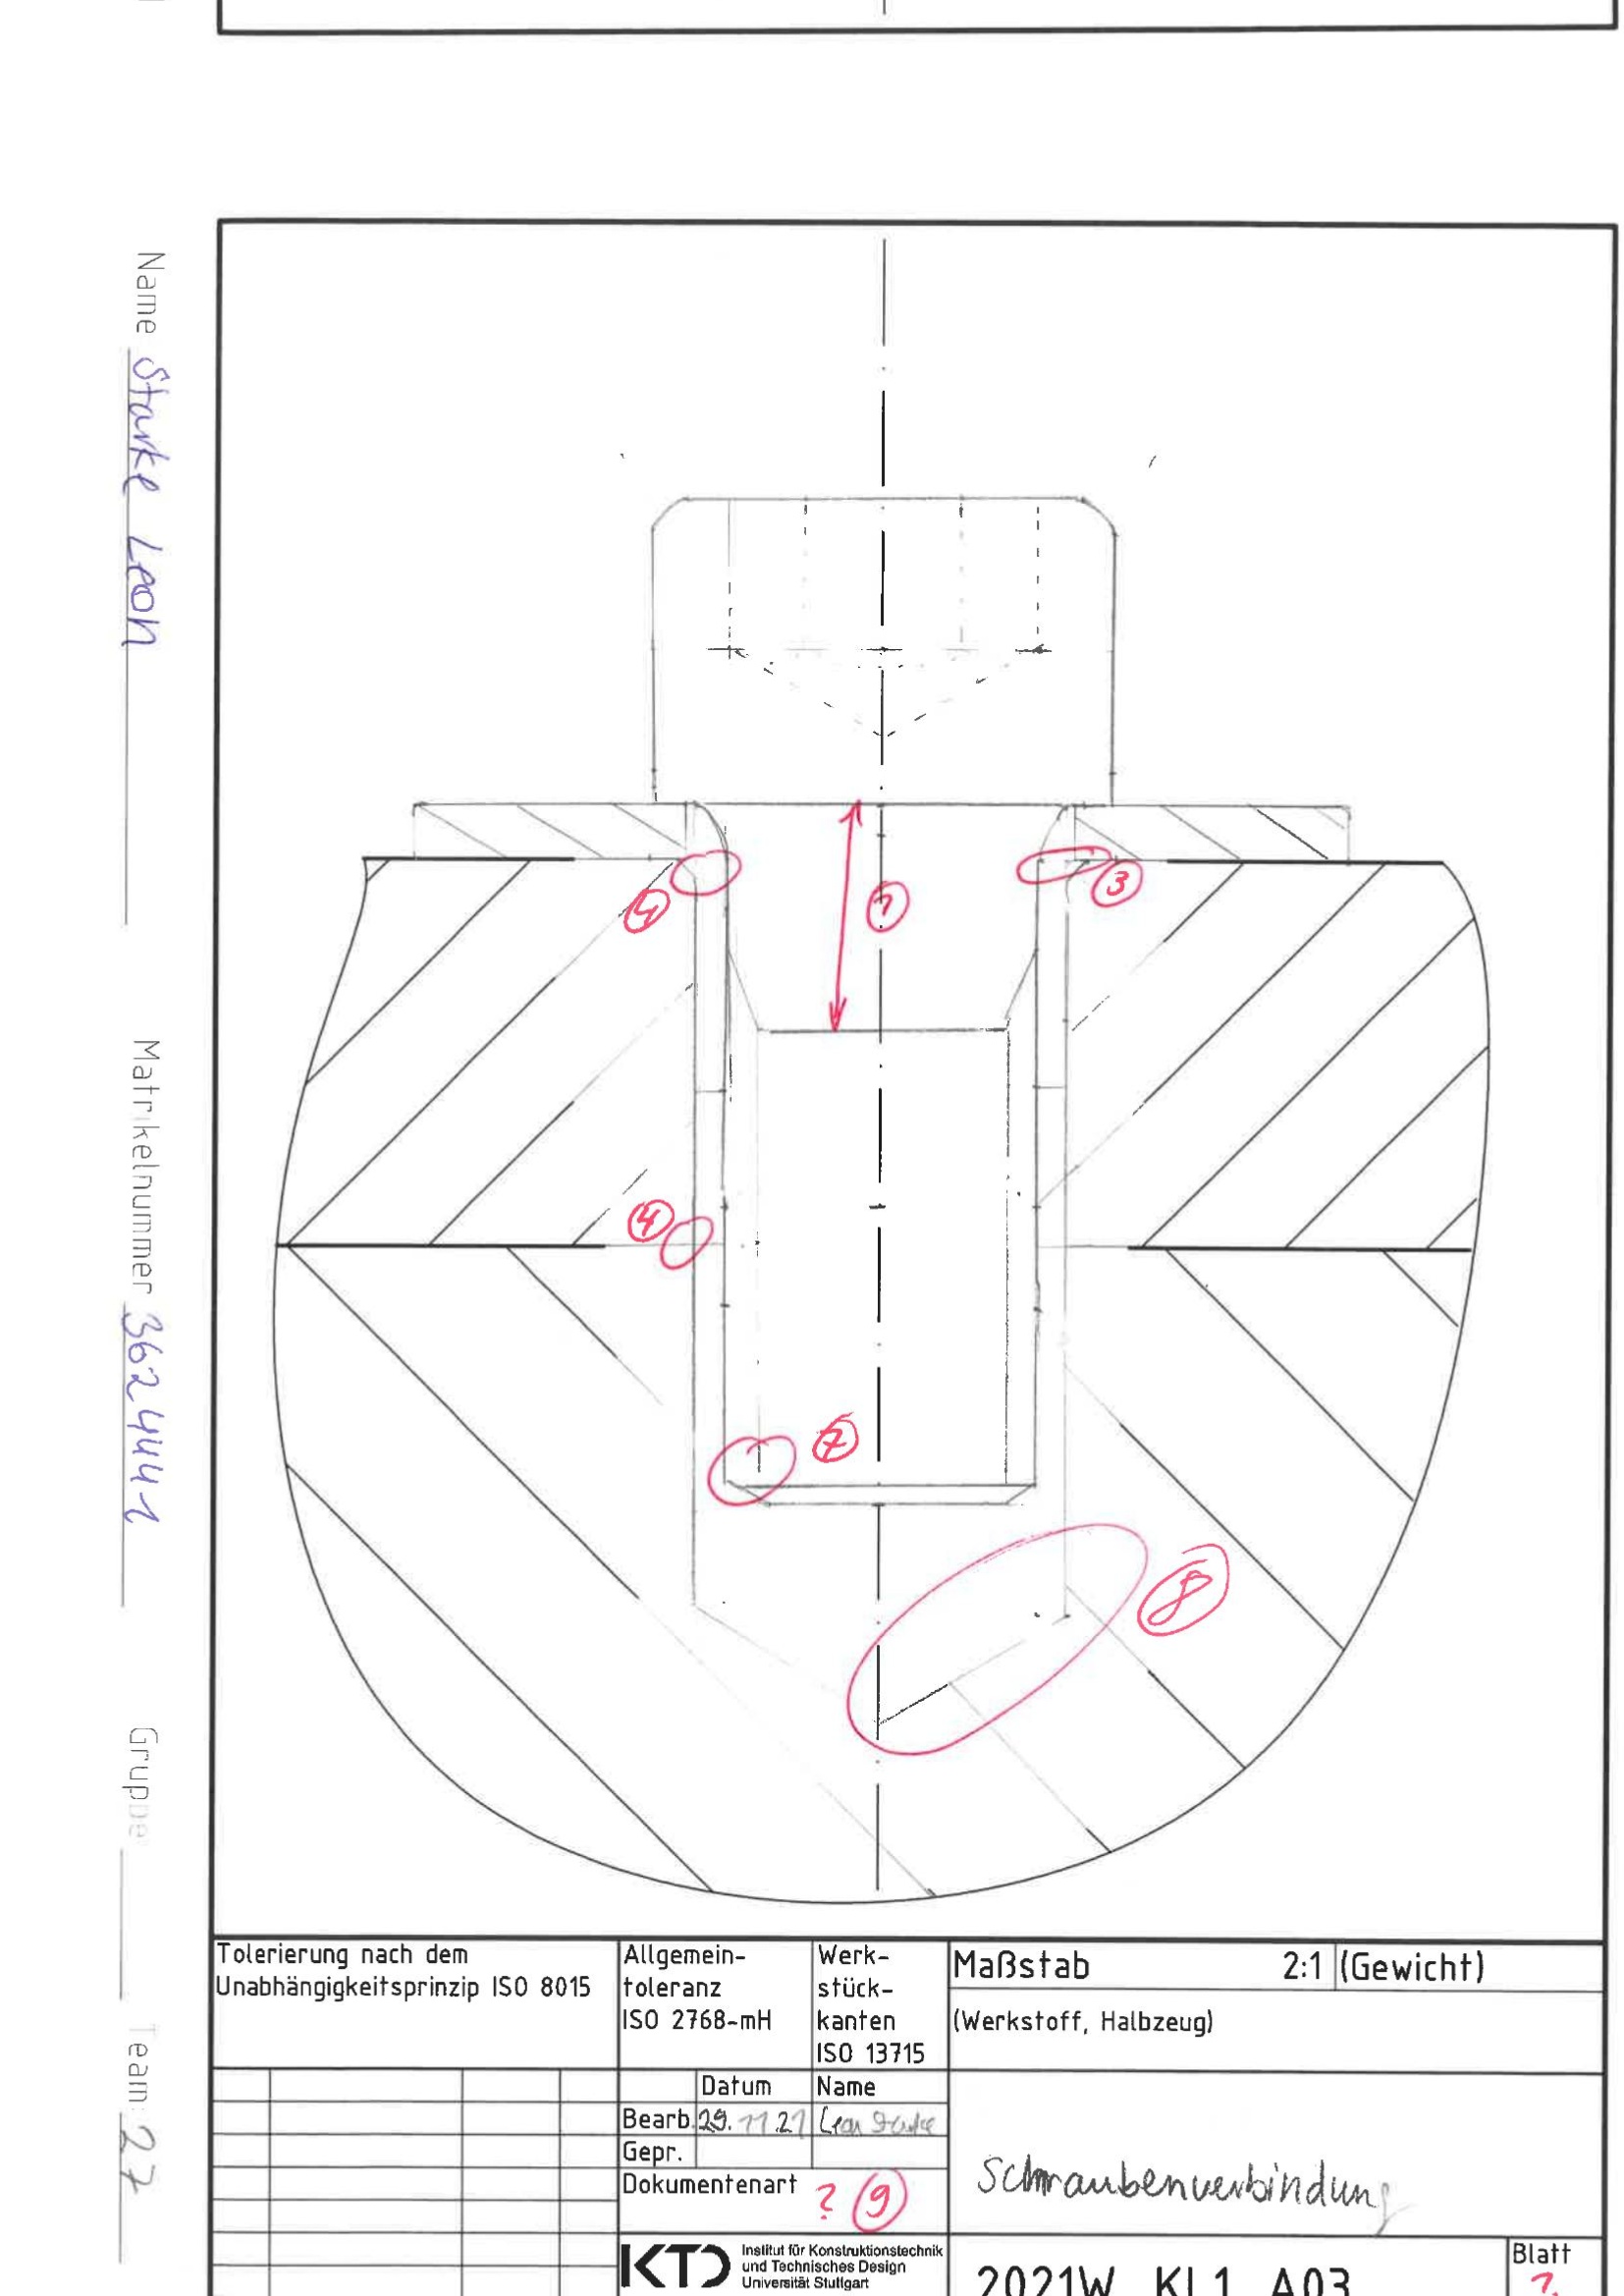 Name Starke Leon
Matrikelnummer 3624441
Gruppe
Team 27
1
3
4
7
8
Tolerierung nach dem
Unabhängigkeitsprinzip ISO 8015
Allgemein-
toleranz
ISO 2768-mH
Werk-
stück-
kanten
ISO 13715
Maßstab 2:1 (Gewicht)
(Werkstoff, Halbzeug)
Datum Name
Bearb. 29.11.21 Leon Starke
Gepr.
Dokumentenart ? 9
Schraubenverbindung
KTD Institut für Konstruktionstechnik
und Technisches Design
Universität Stuttgart
2021W_KL1_A03
Blatt
?